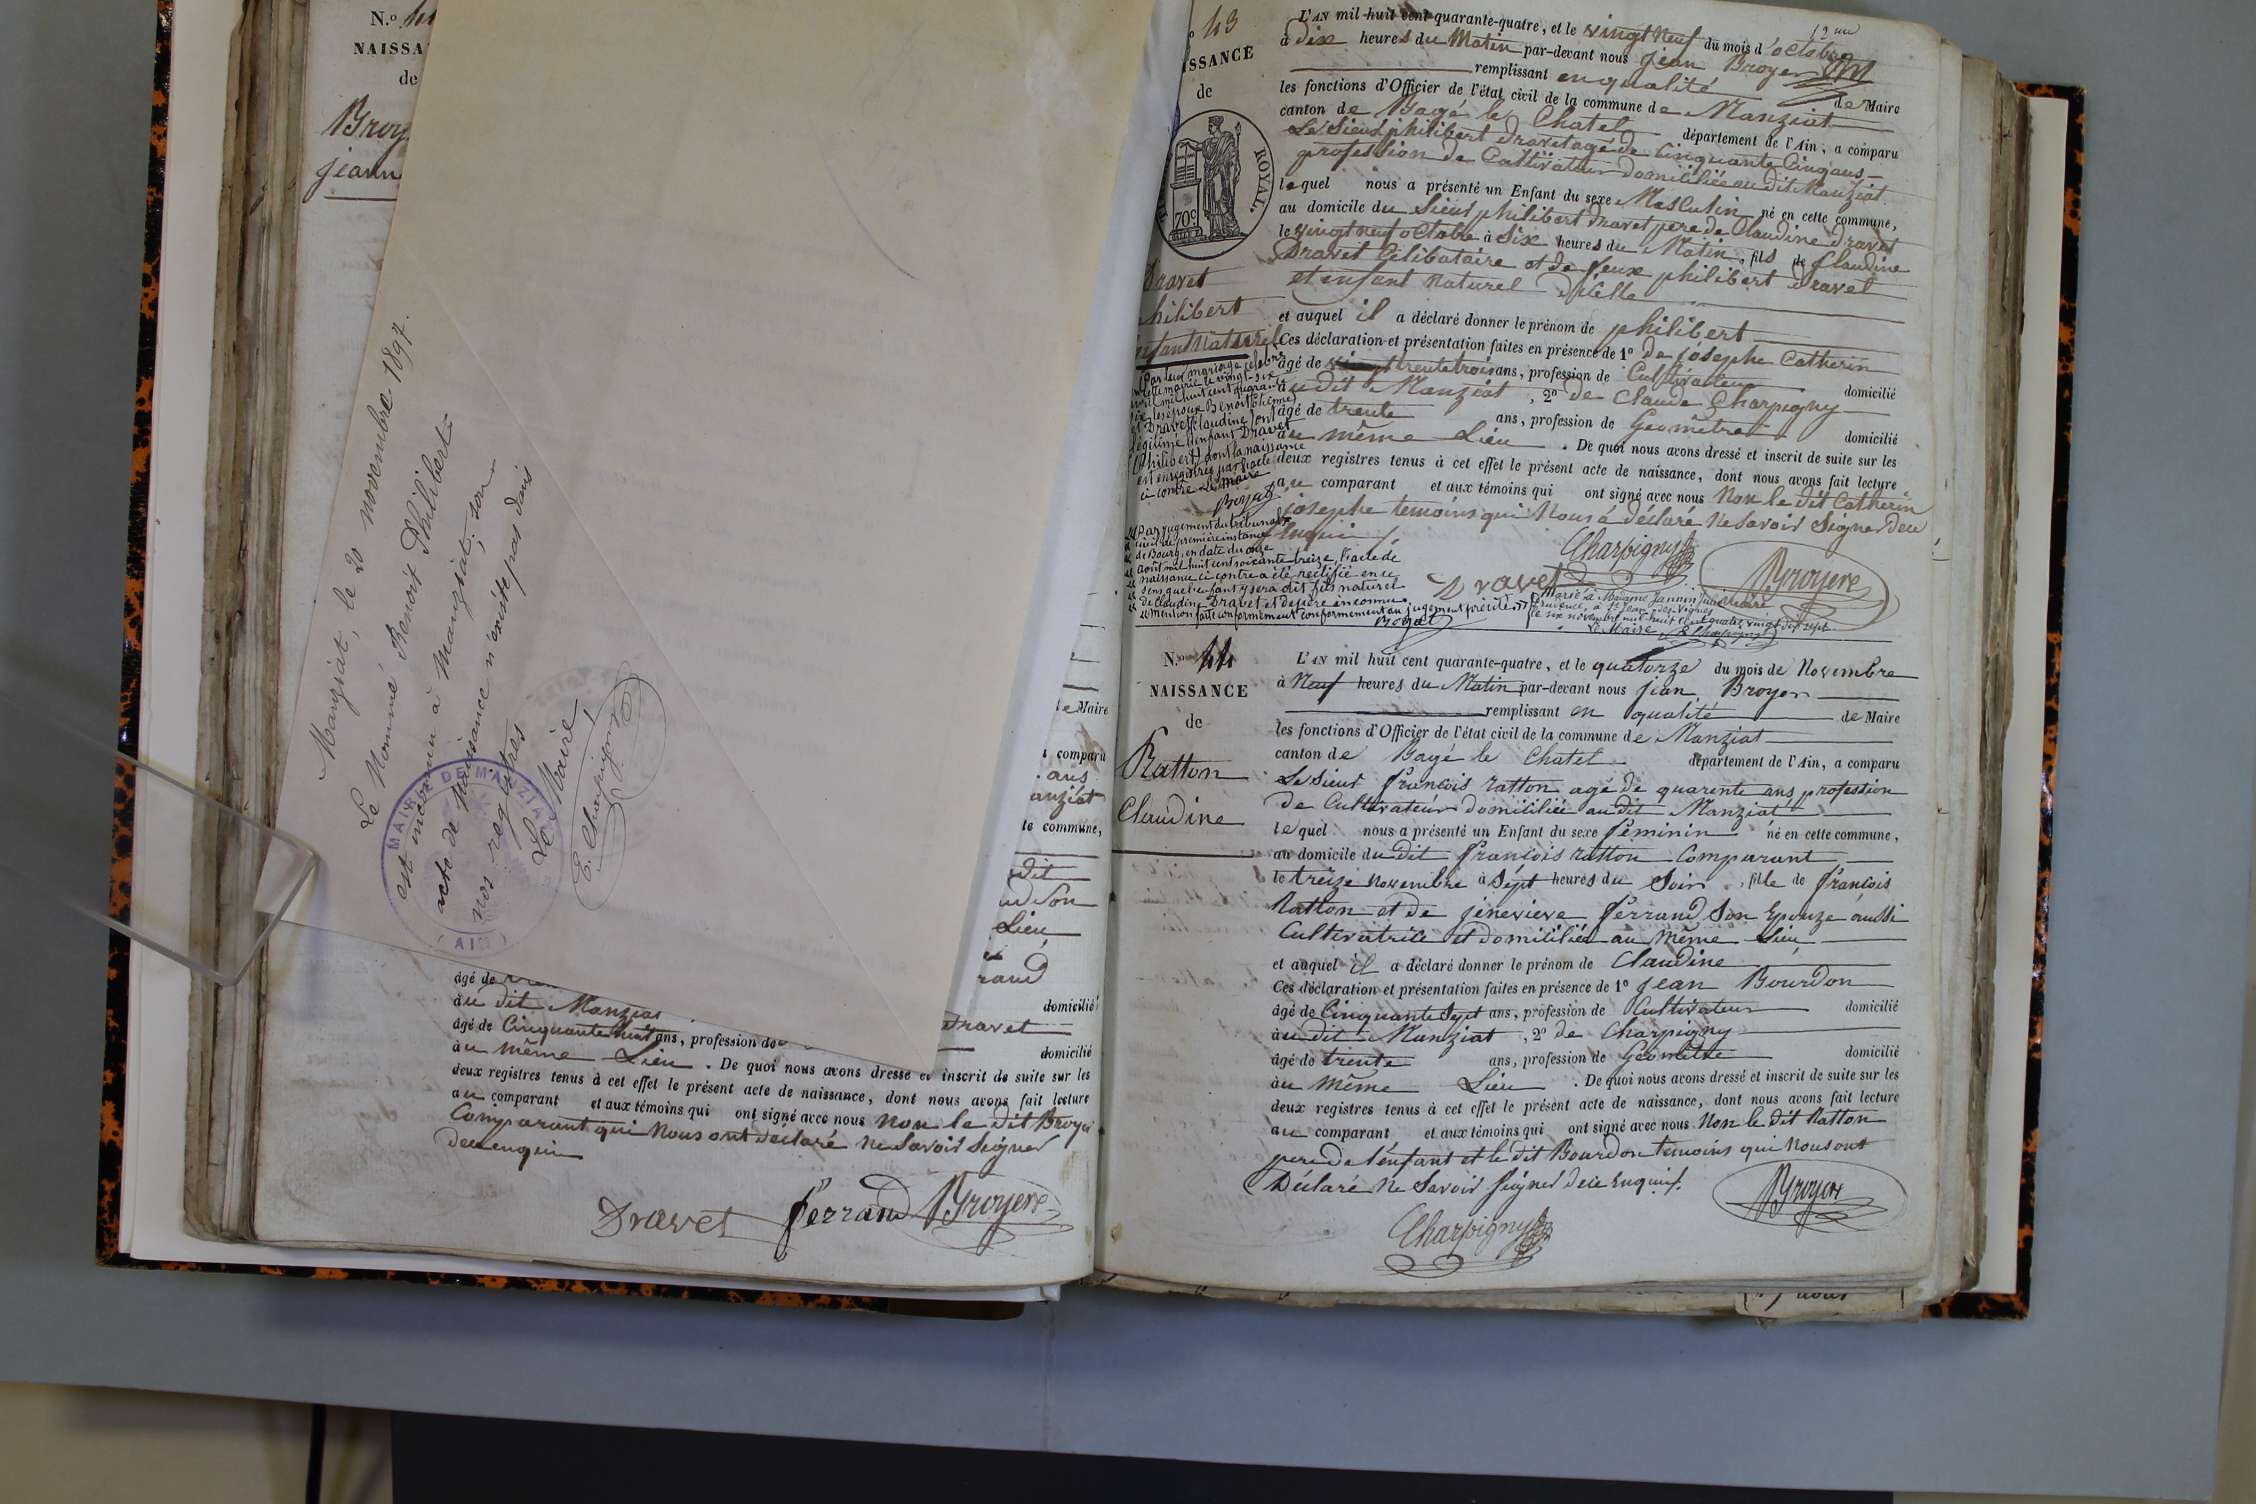 N.º
NAISSA
de
Broy
jeann
Manziat, le 20 novembre 1897.
Le Nommé Benoit Philibert
est inconnu à Manziat; son
acte de naissance n'existe pas dans
nos registres
Le Maire
E. Charpigny
MAIRIE DE MANZIAT
(AIN)
de Maire
comparu
ans
anziat
te commune,
dit
Son
Lieu
rand
âgé de
au dit Manziat domicilié
âgé de Cinquante huit ans, profession de Dravet
au même Lieu . De quoi nous avons dressé et inscrit de suite sur les domicilié
deux registres tenus à cet effet le présent acte de naissance, dont nous avons fait lecture
au comparant et aux témoins qui ont signé avec nous Non le dit Broye
Comparant qui Nous ont déclaré ne Savoir Signer
de ce enquis
Dravet ferrand Broyere
43
ISSANCE
de
ROYAL.
70c
Dravet
hilibert
enfant Naturel
L'AN mil huit cent quarante-quatre, et le vingt Neuf du mois d'octobre
à Dix heures du Matin par-devant nous jean Broyer
remplissant en qualité de Maire
les fonctions d'Officier de l'état civil de la commune de Manziat
canton de Bagé le Chatel département de l'Ain, a comparu
Le Sieur philibert Dravet agé de Cinquante Cinq ans
profession de Cultivateur domiciliée au dit Manziat
lequel nous a présenté un Enfant du sexe Masculin né en cette commune,
au domicile du Sieur philibert Dravet pere de Claudine Dravet
le vingt neuf octobre à Six heures du Matin, fils de Claudine
Dravet Célibataire et de feux philibert Dravet
et enfant Naturel d'icelle
et auquel il a déclaré donner le prénom de philibert
Ces déclaration et présentation faites en présence de 1º de josephe Catherin
âgé de trente trois ans, profession de Cultivateur domicilié
au dit Manziat, 2º de Claude Charpigny
âgé de trente ans, profession de Géomètre domicilié
au même Lieu . De quoi nous avons dressé et inscrit de suite sur les
deux registres tenus à cet effet le présent acte de naissance, dont nous avons fait lecture
au comparant et aux témoins qui ont signé avec nous Non le dit Catherin
josephe temoins qui Nous a déclaré Ne Savoir Signer de ce
Enquis
Par leur mariage célébré
en cette mairie le vingt-six
avril mil huit cent quarante
six les époux Benoit Etienne
et Dravet Claudine ont
légitimé l'enfant Dravet
Philibert dont la naissance
est enregistrée par l'acte
ci contre Le Maire
Boyat
Par jugement du tribunal
civil de première instance
de Bourg, en date du onze
août mil huit cent soixante treize, l'acte de
naissance ci contre a été rectifié en ce
sens que l'enfant y sera dit fils naturel
de Claudine Dravet et de père inconnu.
Mention faite conformément au jugement précité
Boyat
Charpigny
Dravet
Broyere
Marié à
à St Jean des Vignes
le six novembre mil huit cent quatre vingt dix sept
Le Maire E. Charpigny
N.º 44
NAISSANCE
de
Ratton
Claudine
L'AN mil huit cent quarante-quatre, et le quatorze du mois de Novembre
à Neuf heures du Matin par-devant nous jean Broyer
remplissant en qualité de Maire
les fonctions d'Officier de l'état civil de la commune de Manziat
canton de Bagé le Chatel département de l'Ain, a comparu
Le sieur francois ratton agé de quarente ans profession
de Cultivateur domiciliée au dit Manziat
lequel nous a présenté un Enfant du sexe féminin né en cette commune,
au domicile du Dit francois ratton Comparant
le treize Novembre à Sept heures du Soir, fille de francois
Ratton et de jenevieve ferrand Son Epouze aussi
Cultivatrice et domiciliée au même Lieu
et auquel il a déclaré donner le prénom de Claudine
Ces déclaration et présentation faites en présence de 1º jean Bourdon
âgé de Cinquante Sept ans, profession de Cultivateur domicilié
au dit Manziat, 2º de Charpigny
âgé de trente ans, profession de Géomètre domicilié
au même Lieu . De quoi nous avons dressé et inscrit de suite sur les
deux registres tenus à cet effet le présent acte de naissance, dont nous avons fait lecture
au comparant et aux témoins qui ont signé avec nous Non le dit Ratton
pere de l'enfant et le dit Bourdon temoins qui Nous ont
Déclaré Ne Savoir Signer de ce Enquis.
Charpigny
Broyere